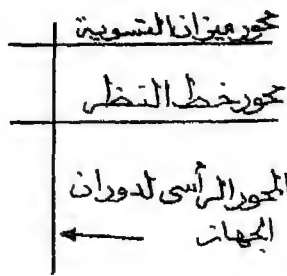 محور ميزان التسوية
محور خط النظر
المحور الرأسى لدوران
الجهاز